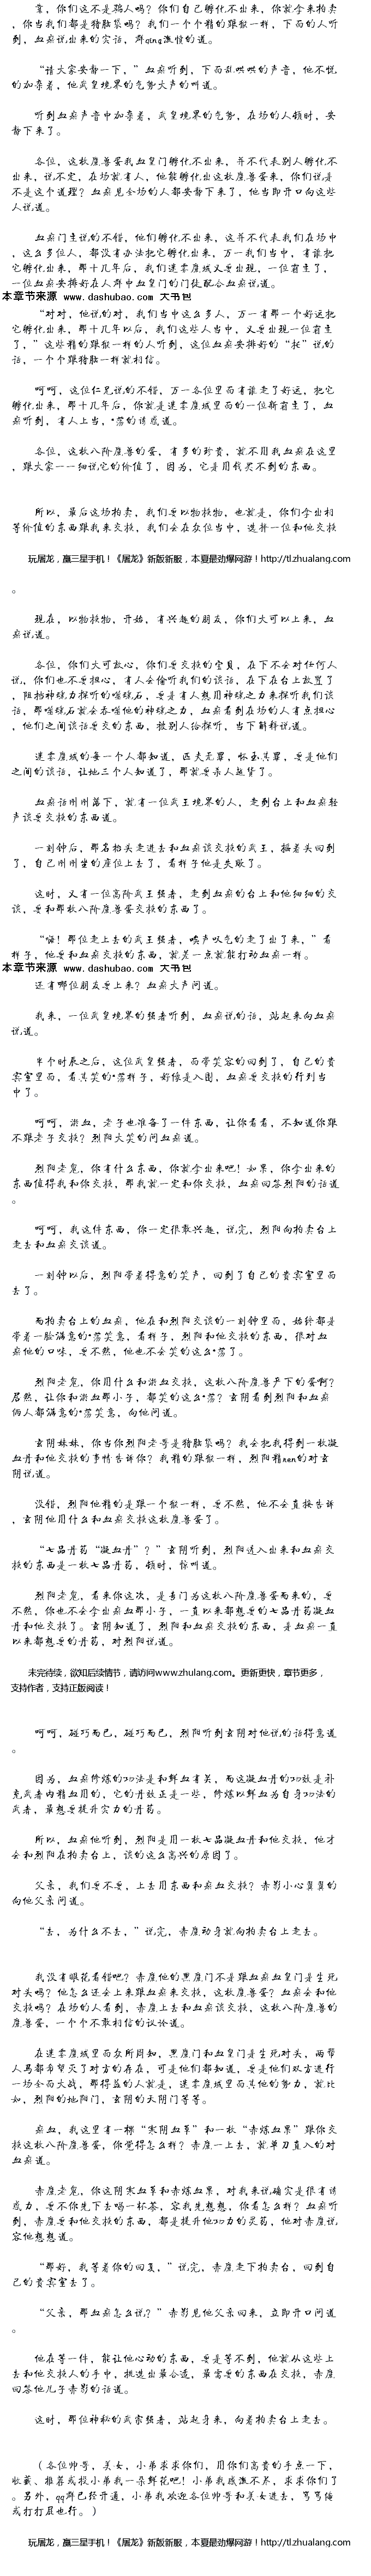 靠，你们这不是骗人吗？你们自己孵化不出来，你就拿来拍卖
，你当我们都是猪脑袋吗？我们一个个精的跟猴一样，下面的人听
到，血痴说出来的实话，群qing激愤的道。
“请大家安静一下，”血痴听到，下面乱哄哄的声音，他不悦
的加杂着，他武皇境界的气势大声的叫道。
听到血痴声音中加杂着，武皇境界的气势，在场的人顿时，安
静下来了。
各位，这枚魔兽蛋我血皇门孵化不出来，并不代表别人孵化不
出来，说不定，在场就有人，他能孵化出这枚魔兽蛋来，你们说是
不是这个道理？血痴见全场的人都安静下来了，他当即开口向这些
人说道。
血痴门主说的不错，他们孵化不出来，这并不代表我们在场中
，这么多位人，都没有办法把它孵化出来，万一我们当中，有谁把
它孵化出来，那十几年后，我们迷雾魔域又要出现，一位霸主了，
一位血痴安排好在人群中血皇门的门徒配合血痴说道。
本章节来源 www.dashubao.com 大书包
“对对，他说的对，我们当中这么多人，万一有那一个好运把
它孵化出来，那十几年以后，我们这些人当中，又要出现一位霸主
了，”这些精的跟猴一样的人听到，这位血痴安排好的“托”说的
话，一个个跟猪脑一样就相信。
呵呵，这位仁兄说的不错，万一各位里面有谁走了好运，把它
孵化出来，那十几年后，你就是迷雾魔域里面的一位新霸主了，血
痴听到，有人上当，*荡的诱惑道。
各位，这枚八阶魔兽的蛋，有多的珍贵，就不用我血痴在这里
，跟大家一一细说它的价值了，因为，它是用钱买不到的东西。
所以，最后这场拍卖，我们要以物换物，也就是，你们拿出相
等价值的东西跟我来交换，我们会在众位当中，选择一位和他交换
玩屠龙，赢三星手机！《屠龙》新版新服，本夏最劲爆网游！http://tl.zhulang.com
。
现在，以物换物，开始，有兴趣的朋友，你们大可以上来，血
痴说道。
各位，你们大可放心，你们要交换的宝贝，在下不会对任何人
说，你们也不要担心，有人会偷听我们的谈话，在下在台上放置了
，阻挡神魂力探听的噬魂石，要是有人想用神魂之力来探听我们谈
话，那噬魂石就会吞噬他的神魂之力，血痴看到在场的人有点担心
，他们之间谈话要交的东西，被别人给探听，当下解释说道。
迷雾魔域的每一个人都知道，匹夫无罪，怀玉其罪，要是他们
之间的谈话，让地三个人知道了，那就要杀人越货了。
血痴话刚刚落下，就有一位武王境界的人，走到台上和血痴轻
声谈要交换的东西道。
一刻钟后，那名抬头走进去和血痴谈交换的武王，摇着头回到
了，自己刚刚坐的座位上去了，看样子他是失败了。
这时，又有一位高阶武王强者，走到血痴的台上和他细细的交
谈，要和那枚八阶魔兽蛋交换的东西了。
“咯！那位走上去的武王强者，唉声叹气的走了出了来，”看
样子，他要和血痴交换的东西，就差一点就能打动血痴一样。
本章节来源 www.dashubao.com 大书包
还有哪位朋友要上来？血痴大声问道。
我来，一位武皇境界的强者听到，血痴说的话，站起来向血痴
说道。
半个时辰之后，这位武皇强者，面带笑容的回到了，自己的贵
宾室里面，看其笑的*荡样子，好像是入围，血痴要交换的行列当
中了。
呵呵，淤血，老子也准备了一件东西，让你看看，不知道你跟
不跟老子交换？烈阳大笑的问血痴道。
烈阳老鬼，你有什么东西，你就拿出来吧！如果，你拿出来的
东西值得我和你交换，那我就一定和你交换，血痴回答烈阳的话道
。
呵呵，我这件东西，你一定很敢兴趣，说完，烈阳向拍卖台上
走去和血痴交谈道。
一刻钟以后，烈阳带着得意的笑声，回到了自己的贵宾室里面
去了。
而拍卖台上的血痴，他在和烈阳交谈的一刻钟里面，始终都是
带着一脸满意的*荡笑意，看样子，烈阳和他交换的东西，很对血
痴他的口味，要不然，他也不会笑的这么*荡了。
烈阳老鬼，你用什么和淤血交换，这枚八阶魔兽产下的蛋啊？
居然，让你和淤血那小子，都笑的这么*荡？玄阴看到烈阳和血痴
俩人都满意的*荡笑意，向他问道。
玄阴妹妹，你当你烈阳老哥是猪脑袋吗？我会把我得到一枚凝
血丹和他交换的事情告诉你？我精的跟猴一样，烈阳精nen的对玄
阴说道。
没错，烈阳他精的是跟一个猴一样，要不然，他不会直接告诉
，玄阴他用什么和血痴交换这枚魔兽蛋了。
“七品丹药“凝血丹”？”玄阴听到，烈阳透入出来和血痴交
换的东西是一枚七品丹药，顿时，惊叫道。
烈阳老鬼，看来你这次，是专门为这枚八阶魔兽蛋而来的，要
不然，你也不会拿出血痴那小子，一直以来都想要的七品丹药凝血
丹和他交换了。玄阴知道了，烈阳和血痴交换的东西，是血痴一直
以来都想要的丹药，对烈阳说道。
未完待续，欲知后续情节，请访问www.zhulang.com。更新更快，章节更多，
支持作者，支持正版阅读！
呵呵，碰巧而已，碰巧而已，烈阳听到玄阴对他说的话得意道
。
因为，血痴修炼的功法是和鲜血有关，而这凝血丹的功效是补
充武者内精血用的，它的丹效正是一些，修炼以鲜血为自身功法的
武者，最想要提升实力的丹药。
所以，血痴他听到，烈阳是用一枚七品凝血丹和他交换，他才
会和烈阳在拍卖台上，谈的这么高兴的原因了。
父亲，我们要不要，上去用东西和血痴交换？赤影小心翼翼的
向他父亲问道。
“去，为什么不去，”说完，赤魔动身就向拍卖台上走去。
我没有眼花看错吧？赤魔他的黑魔门不是跟血痴血皇门是生死
对头吗？他怎么还会上来跟血痴来交换，这枚魔兽蛋？血痴会和他
交换吗？在场的人看到，赤魔上去和血痴谈交换，这枚八阶魔兽的
魔兽蛋，一个个不敢相信的议论道。
在迷雾魔域里面众所周知，黑魔门和血皇门是生死对头，两帮
人马都希望灭了对方的存在，可是他们都知道，要是他们双方进行
一场全面大战，那得益的人就是，迷雾魔域里面其他的势力，就比
如，烈阳的地阳门，玄阴的天阴门等等。
痴血，我这里有一棵“寒阴血草”和一枚“赤炼血果”跟你交
换这枚八阶魔兽蛋，你觉得怎么样？赤魔一上去，就单刀直入的对
血痴道。
赤魔老鬼，你这阴寒血草和赤炼血果，对我来说确实是很有诱
惑力，要不你先下去喝一杯茶，容我先想想，你看怎么样？血痴听
到，赤魔要和他交换的东西，都是提升他功力的灵药，他对赤魔说
容他想想道。
“那好，我等着你的回复，”说完，赤魔走下拍卖台，回到自
己的贵宾室去了。
“父亲，那血痴怎么说？”赤影见他父亲回来，立即开口问道
。
他在等一件，能让他心动的东西，要是等不到，他就从这些上
去和他交换人的手中，挑选出最合适，最需要的东西在交换，赤魔
回答他儿子赤影的话道。
这时，那位神秘的武宗强者，站起身来，向着拍卖台上走去。
（各位帅哥，美女，小弟求求你们，用你们高贵的手点一下，
收藏、推荐或投小弟我一朵鲜花吧！小弟我感激不尽，求求你们了
。另外，qq群已经开通，小弟我欢迎各位帅哥和美女进去，骂骂俺
或打打屁也行。）
玩屠龙，赢三星手机！《屠龙》新版新服，本夏最劲爆网游！http://tl.zhulang.com